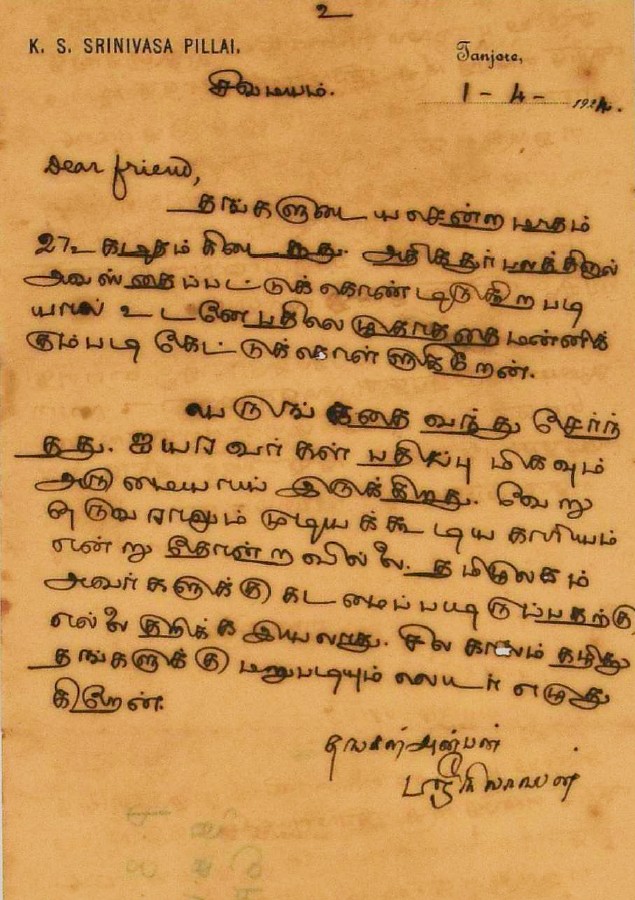 2
K. S. SRINIVASA PILLAI.
Tanjore,
சிவமயம்.
1 - 4 - 1924.
Dear friend,
தங்களுடைய சென்ற மாதம்
27உ கடிதம் கிடைத்தது. அதிக சுர பலத்தினால்
அவஸ்தைப்பட்டுக் கொண்டிருக்கிற படி
யால் உடனே பதிலெழுதாததை மன்னிக்
கும்படி கேட்டுக்கொள்ளுகிறேன்.
வந்து சேர்ந்
தது. ஐயரவர்கள் பதிப்பு மிகவும்
அருமையாய் இருக்கிறது. வேறு
ஒருவராலும் முடியக்கூடிய காரியம்
என்று தோன்றவில்லை. தமிழுலகம்
அவர்களுக்கு கடமைப்பட்டிருப்பதற்கு
எல்லை குறிக்க இயலாது. சில காலம் கழித்து
தங்களுக்கு மறுபடியும் லெடர் எழுது
கிறேன்.
தங்கள் அன்பன்